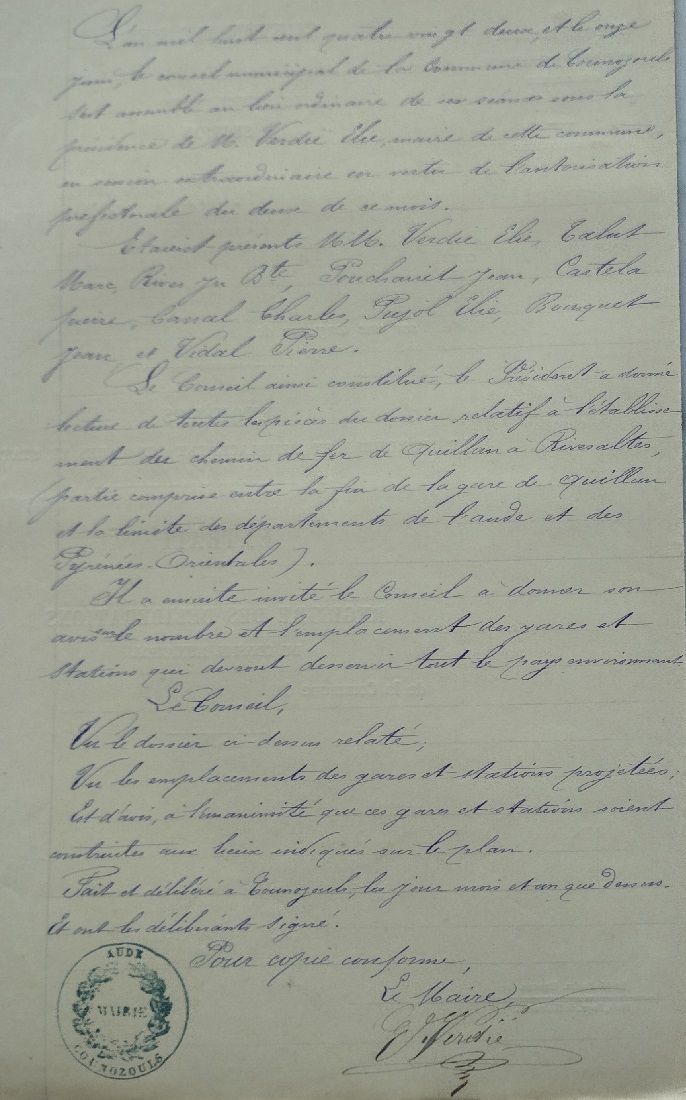 L'an mil huit cent quatre vingt deux, et le onze
juin, le conseil municipal de la Commune de Counozouls
s'est assemblé au lieu ordinaire de ses séances sous la
présidence de M. Verdié Elie, maire de cette commune,
en session extraordinaire en vertu de l'autorisation
préfectorale du deux de ce mois.
Etaient présents MM. Verdié Elie, Talut
Marc, Rives Jn Bte, Pouchairet Jean, Castela
pierre, Canal Charles, Pujol Elie, Bousquet
Jean, et Vidal Pierre.
Le Conseil ainsi constitué, le Président a donné
lecture de toutes les pièces du dossier relatif à l'établisse-
ment du chemin de fer de Quillan à Rivesaltes,
(partie comprise entre la fin de la gare de Quillan
et la limite des départements de l'aude et des
Pyrénées-Orientales).
Il a ensuite invité le Conseil à donner son
avis sur le nombre et l'emplacement des gares et
stations qui devront desservir tout le pays environnant
Le Conseil,
Vu le dossier ci-dessus relaté;
Vu les emplacements des gares et stations projetées;
Est d'avis, à l'unanimité que ces gares et stations soient
construites aux lieux indiqués sur le plan.
Fait et délibéré à Counozouls, les jour mois et an que dessus.
Et ont les délibérants signé.
Pour copie conforme,
Le Maire,
E Verdié
AUDE
MAIRIE
COUNOZOULS